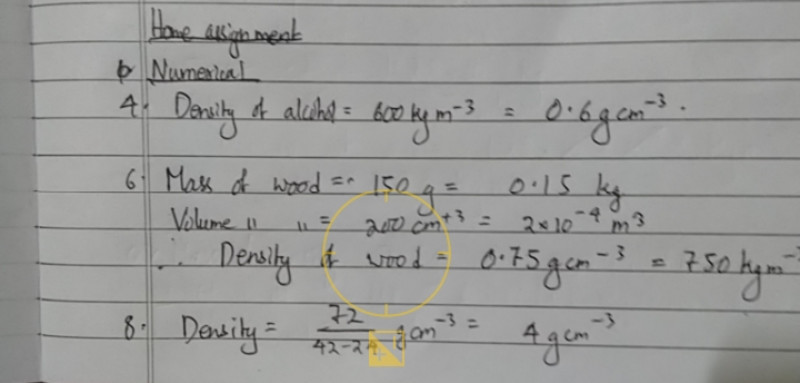 Home assignment
b Numerical
4. Density of alcohol = 600 kg m⁻³ = 0.6 g cm⁻³.
6. Mass of wood = 150 g = 0.15 kg
Volume " " = 200 cm⁺³ = 2×10⁻⁴ m³
∴ Density of wood = 0.75 g cm⁻³ = 750 kg m⁻³
8. Density = 72/42-24 g cm⁻³ = 4 g cm⁻³